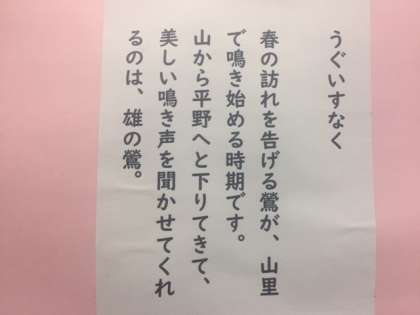 うぐいすなく
春の訪れを告げる鶯が、山里
で鳴き始める時期です。
山から平野へと下りてきて、
美しい鳴き声を聞かせてくれ
るのは、雄の鶯。